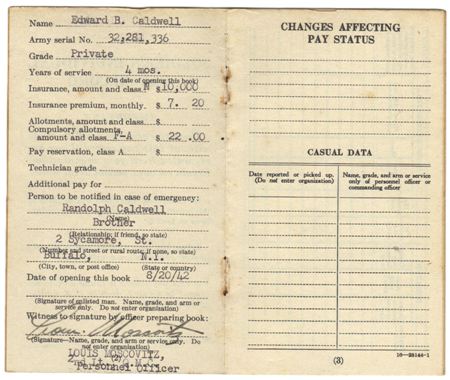 Name Edward B. Caldwell
Army serial No. 32,281,336
Grade Private
Years of service 4 mos.
(On date of opening this book)
Insurance, amount and class N $ 10,000
Insurance premium, monthly. $ 7. 20
Allotments, amount and class. $
Compulsory allotments,
amount and class F-A $ 22 .00
Pay reservation, class A $
Technician grade
Additional pay for
Person to be notified in case of emergency:
Randolph Caldwell
(Name)
Brother
(Relationship; if friend, so state)
2 Sycamore, St.
(Number and street or rural route; if none, so state)
Buffalo, N.Y.
(City, town, or post office) (State or country)
Date of opening this book 8/20/42
(Signature of enlisted man. Name, grade, and arm or
service only. Do not enter organization)
Witness to signature by officer preparing book:
Louis Moscovitz
(Signature—Name, grade, and arm or service only. Do
not enter organization)
LOUIS MOSCOVITZ,
2nd Lt. (2)
Personnel Officer
CHANGES AFFECTING
PAY STATUS
CASUAL DATA
Date reported or picked up.
(Do not enter organization)
Name, grade, and arm or service
only of personnel officer or
commanding officer
(3)
16—28144-1